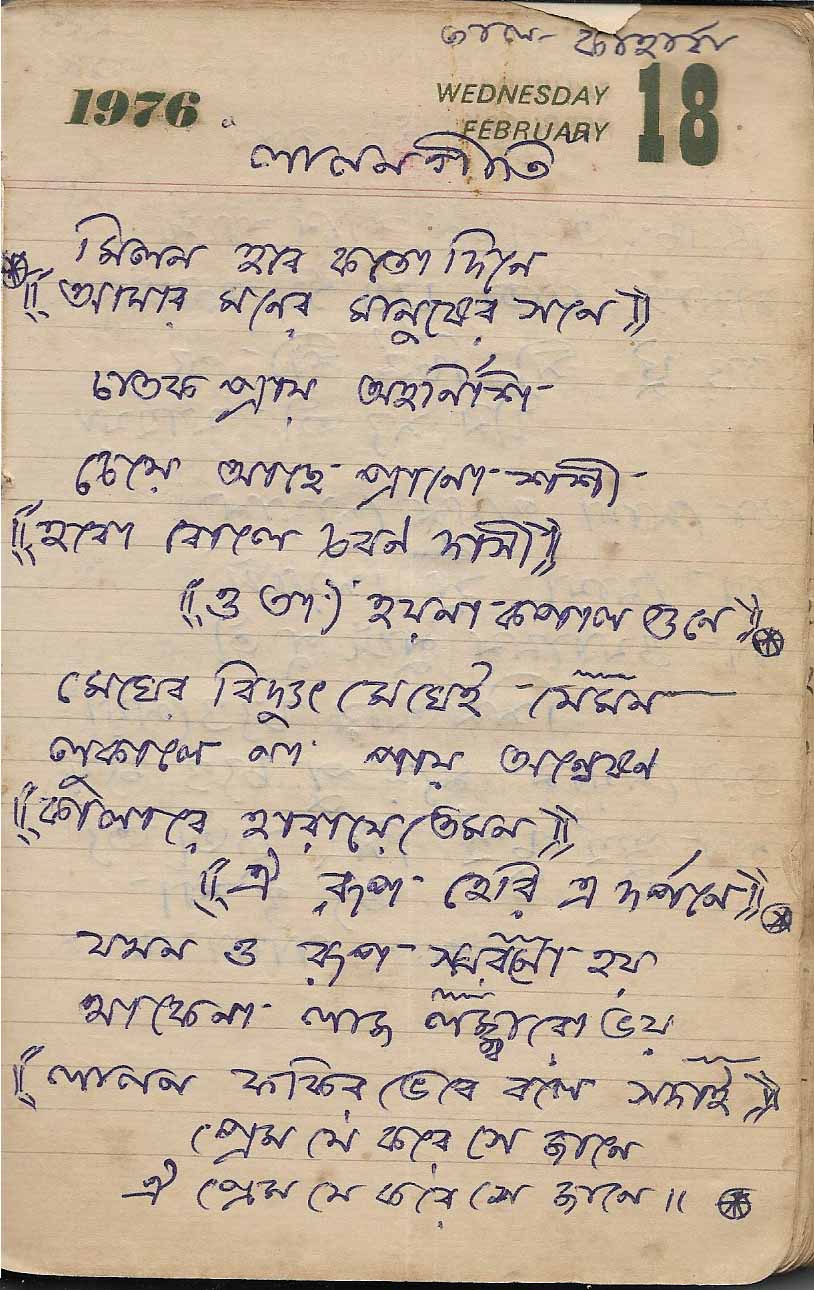 তাল- কাহার্বা
1976
WEDNESDAY 18
FEBRUARY
লালনগীতি
মিলন হবে কতো দিনে
((আমার মনের মানুষের সনে))
চাতক প্রায় অহর্নিশি
চেয়ে আছে প্রানো শশী
((হবো বোলে চরন দাসী))
((ও তা) হয়না কপাল গুনে))
মেঘের বিদ্যুৎ মেঘেই যেমন
লুকালে না পায় অন্বেষন
((কালারে হারায়ে তেমন))
((ঐ রূপ হেরি এ দর্পনে))
যখন ও রূপ স্মরনো হয়
থাকেনা লাজ লজ্জারো ভয়
((লালন ফকির ভেবে বলে সদাই))
প্রেম যে করে সে জানে
ঐ প্রেম যে করে সে জানে।।